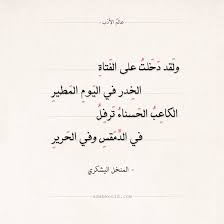 - عالم الأدب -
ولقد دَخَلتُ على الفَتاةِ
الخِدرَ في اليَومِ المَطيرِ
الكاعِبُ الحَسناءُ تَرفُلُ
في الدِّمَقسِ وَفي الحَريرِ
- المنخل اليشكري
adabworld.com